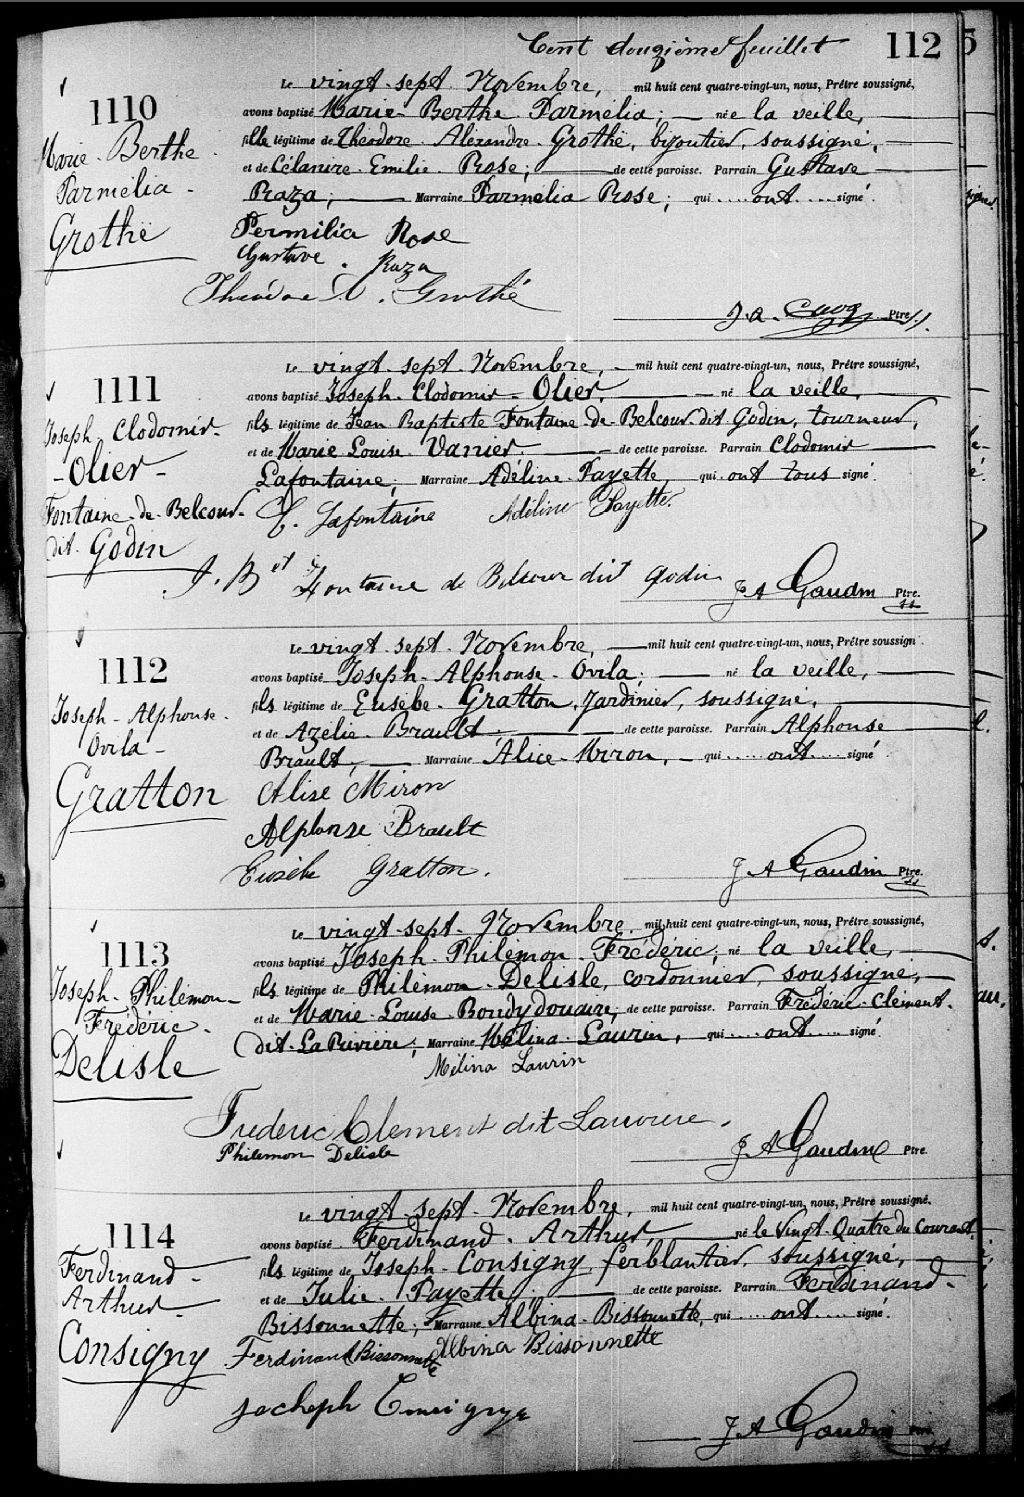 Cent douzième feuillet 112
1110
Marie-Berthe
Parmélia-
Grothé
Le vingt-sept Novembre, mil huit cent quatre-vingt-un, nous, Prêtre soussigné,
avons baptisé Marie-Berthe Parmélia; née la veille,
fille légitime de Théodore Alexandre Grothé, bijoutier, soussigné,
et de Célanire-Emilie Rose; de cette paroisse. Parrain Gustave
Raza; Marraine Parmélia Rose; qui .... ont .... signé.
Permilia Rose
Gustave Raza
Théodore A. Grothé
J. A. Cuoq Ptre
1111
Joseph Clodomir-
-Olier-
Fontaine-de-Belcour-
dit Godin
Le vingt-sept Novembre, mil huit cent quatre-vingt-un, nous, Prêtre soussigné,
avons baptisé Joseph-Clodomir-Olier, né la veille,
fils légitime de Jean Baptiste Fontaine-de-Belcour-dit Godin, tourneur,
et de Marie Louise Vanier de cette paroisse. Parrain Clodomir
Lafontaine; Marraine Adéline Payette, qui ont tous signé
C. Lafontaine Adéline Payette
J. Bt Fontaine de Belcour dit Godin
J A Gaudin Ptre.
1112
Joseph-Alphonse-
Ovila-
Gratton
Le vingt-sept Novembre, mil huit cent quatre-vingt-un, nous, Prêtre soussign
avons baptisé Joseph-Alphonse-Ovila; né la veille,
fils légitime de Eusèbe-Gratton, Jardinier, soussigné,
et de Azélie Brault de cette paroisse. Parrain Alphonse
Brault, Marraine Alice-Miron, qui .... ont .... signé
Alise Miron
Alphonse Brault
Eusèbe Gratton.
J A Gaudin Ptre.
1113
Joseph-Philémon-
Frédéric-
Delisle
Le vingt-sept-Novembre, mil huit cent quatre-vingt-un, nous, Prêtre soussigné,
avons baptisé Joseph-Philémon Frédéric; né la veille,
fils légitime de Philémon-Delisle, cordonnier, soussigné,
et de Marie-Louise de cette paroisse. Parrain Frédéric-Clément-
dit-La Marraine Mélina-Laurin, qui .... ont .... signé
Mélina Laurin
Frederic Clement dit
Philemon Delisle
J A Gaudin Ptre
1114
Ferdinand-
Arthur-
Consigny
Le vingt-sept-Novembre, mil huit cent quatre-vingt-un, nous, Prêtre soussigné,
avons baptisé Ferdinand-Arthur, né le Vingt-Quatre du Courant,
fils légitime de Joseph-Consigny, ferblantier, soussigné,
et de Julie-Payette; de cette paroisse. Parrain Ferdinand-
Bissonnette; Marraine Albina-Bissonnette, qui .... ont .... signé
Ferdinand Bissonnette Albina Bissonnette
J A Gaudin